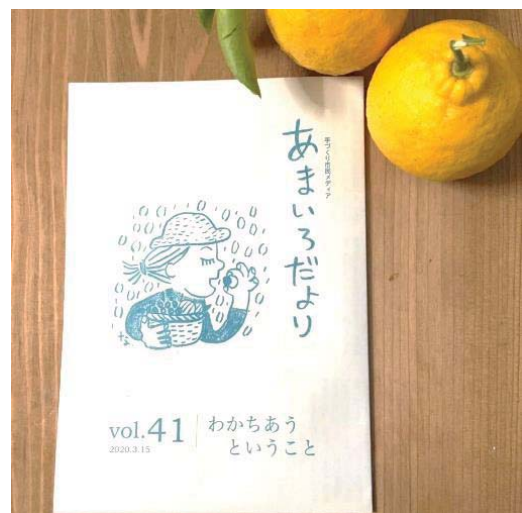 手づくり市民メディア
あまいろだより
な
vol.41
2020.3.15
わかちあう
ということ